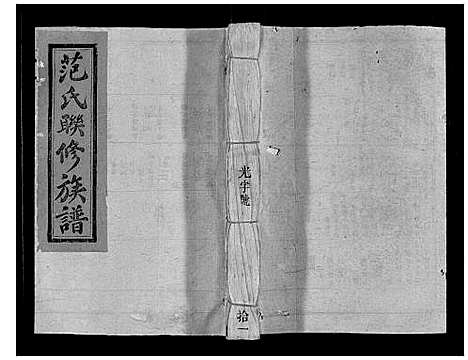 范氏聯修族譜
光字號
拾一